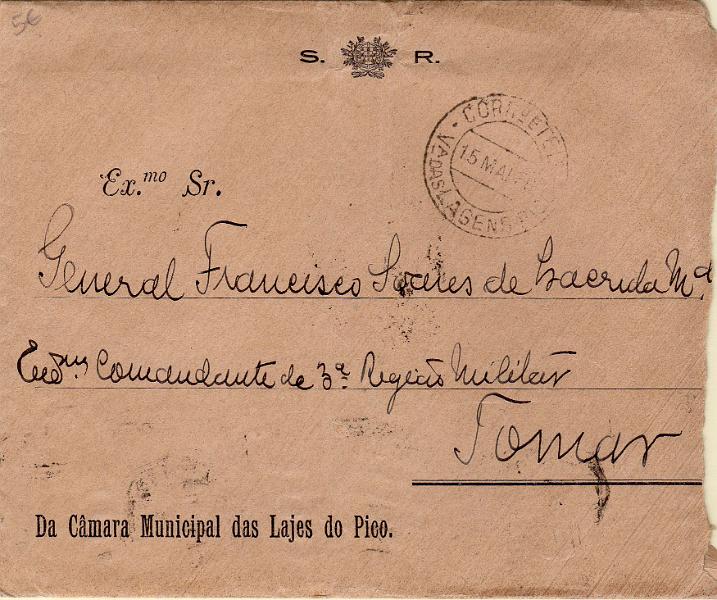 5€
S. R.
CORR. E TEL.
15 MAI
VA DAS LAGENS P
Ex.mo Sr.
General Francisco Soares de Lacerda Md.
Comandante de 3ª Região Militar
Tomar
Da Câmara Municipal das Lajes do Pico.